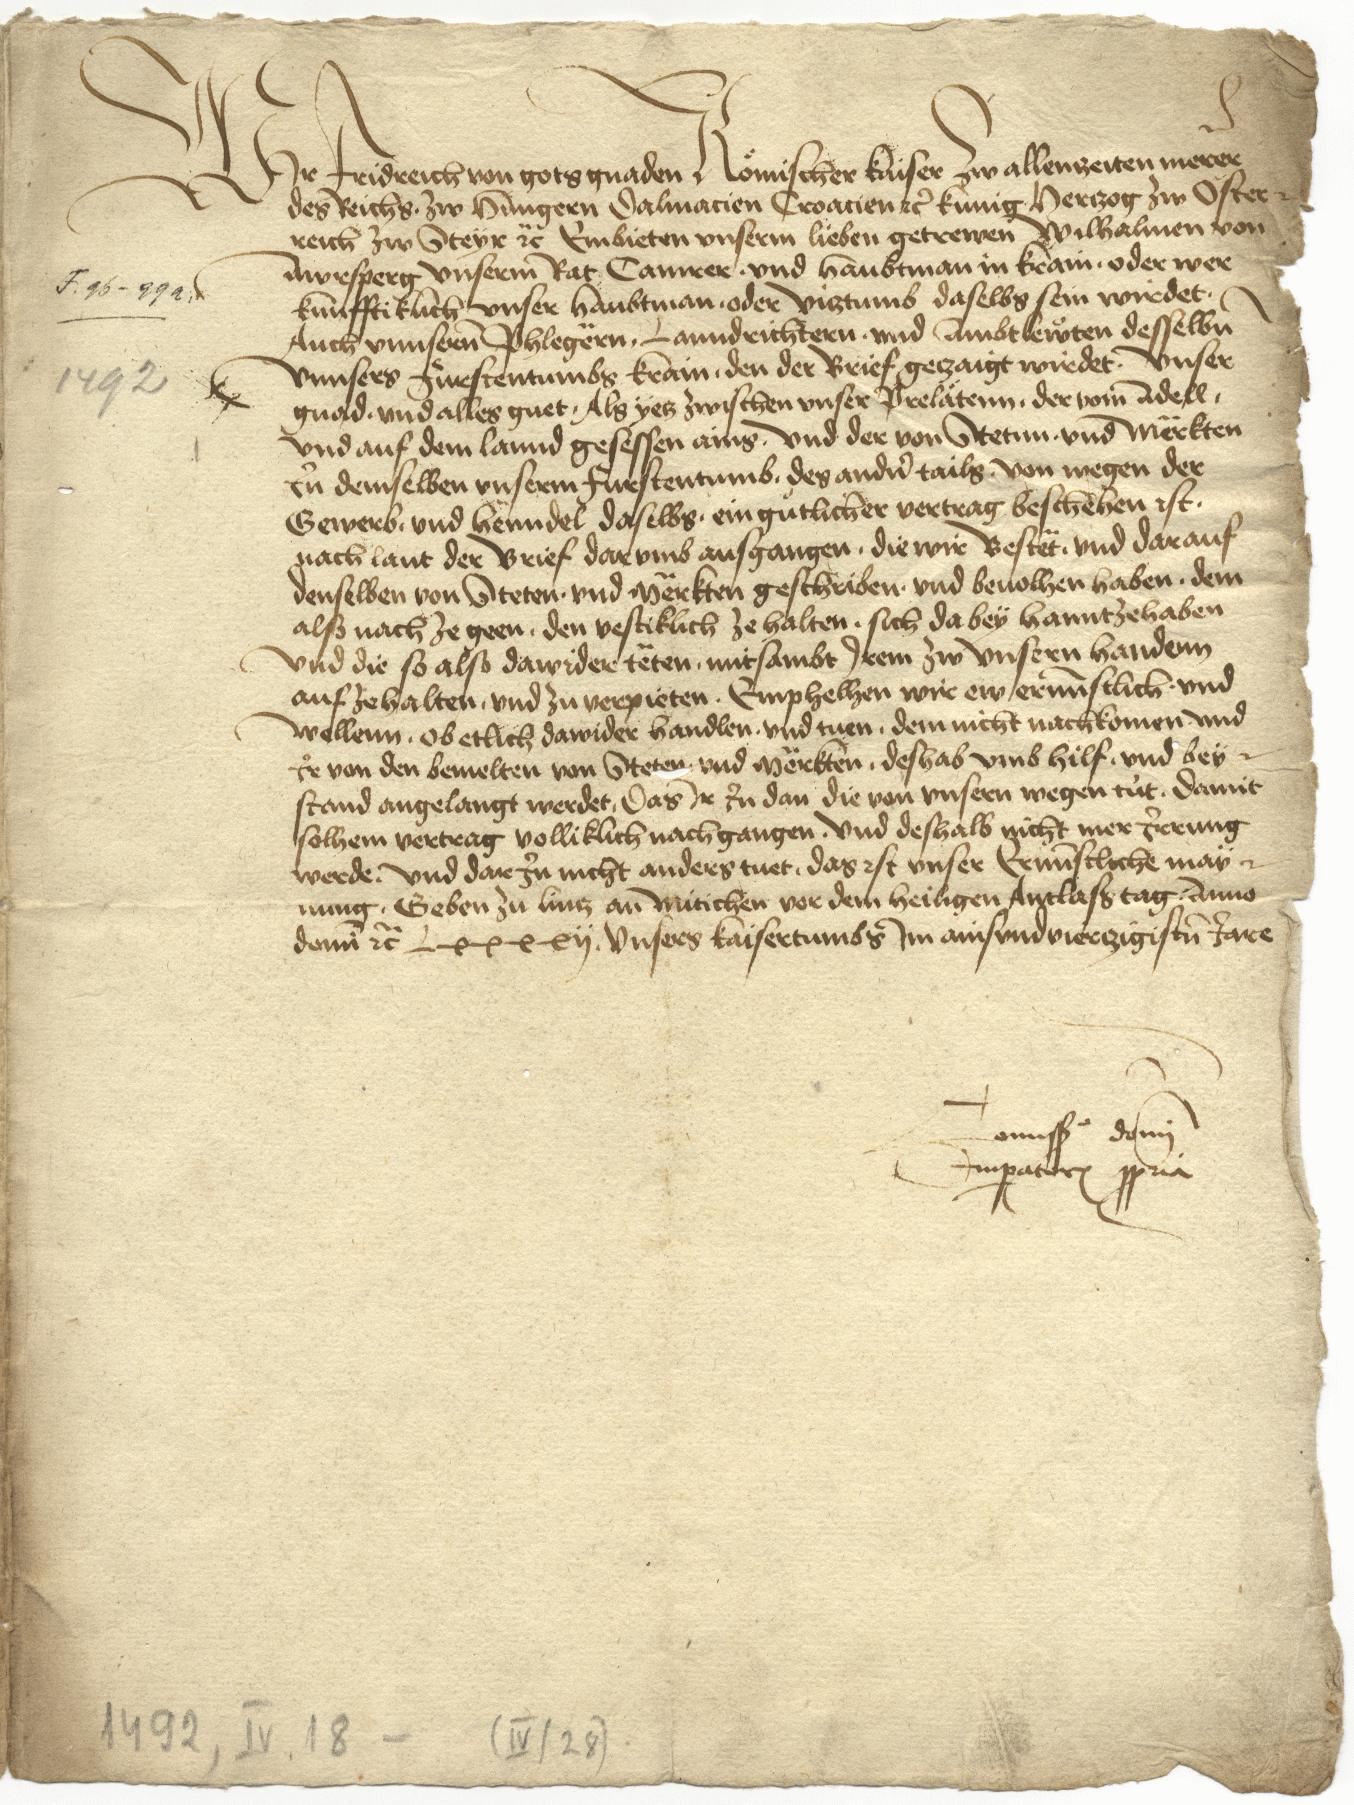 WIr Fridreich von gots gnaden Römischer kaiser zw allenzeiten merer
des Reichs. zw Hungern Dalmacien Croacien rc kunig Hertzog zw Oster
reich zw Steyr rc Embieten vnserm lieben getrewen Wilhalmen von
Awrsperg vnserm Rat. Camrer. vnd haubtman in krain. oder wer
F. 96-99a.
kunfftiklich vnser haubtman. oder viztumb daselbs sein wirdet.
Auch vnnsern Phlegërn. Lanndrichtern. vnd ambtlewten desselbn
1492
vnnsers Furstentumbs krain. den der Brief getzaigt wirdet. Vnser
gnad. vnd alles guet. Als yetz zwischen vnser Prelätenn. der vom Adell.
vnd auf dem lannd gesessen ains. Vnd der von Stetnn. vnd Märkten
in demselben vnserm Furstentumb. des andn tails. von wegen der
Gewerb. vnd henndel daselbs. ein gutlicher vertrag beschehen ist.
nach laut der Brief darumb ausgangen. die wir Bestët. vnd darauf
denselben von Steten. vnd Märkten geschriben. vnd beuolhen haben. dem
also nach ze geen. den vestiklich ze halten. sich dabey hanntzehaben
vnd die so also dawider tëten. mitsambt Irem zw vnsern handenn
auf ze halten. vnd zu verpieten. Emphelhen wir ew ernnstlich. vnd
wellenn. ob etlich dawider handlen. vnd tuen. dem nicht nachkomen vnd
Ir von den bemelten von Steten. vnd Märkten. deshab vmb hilf. vnd bey
stand angelangt werdet. Das Ir In dan die von vnsern wegen tut. Damit
solhem vertrag volliklich nachgangen. vnd deshalb nicht mer Irrung
werde. Vnd dar In nicht anders tuet. das ist vnser Ernnstliche may
nung. Geben zu Linz an Mitichen vor dem heiligen Antlass tag. Anno
domi rc Lxxxxij. Vnsers kaisertumbs Im ainsvndviertzigistn Jare
Comissio domi
Impatoris ppria
1492, IV. 18 - (IV/28)